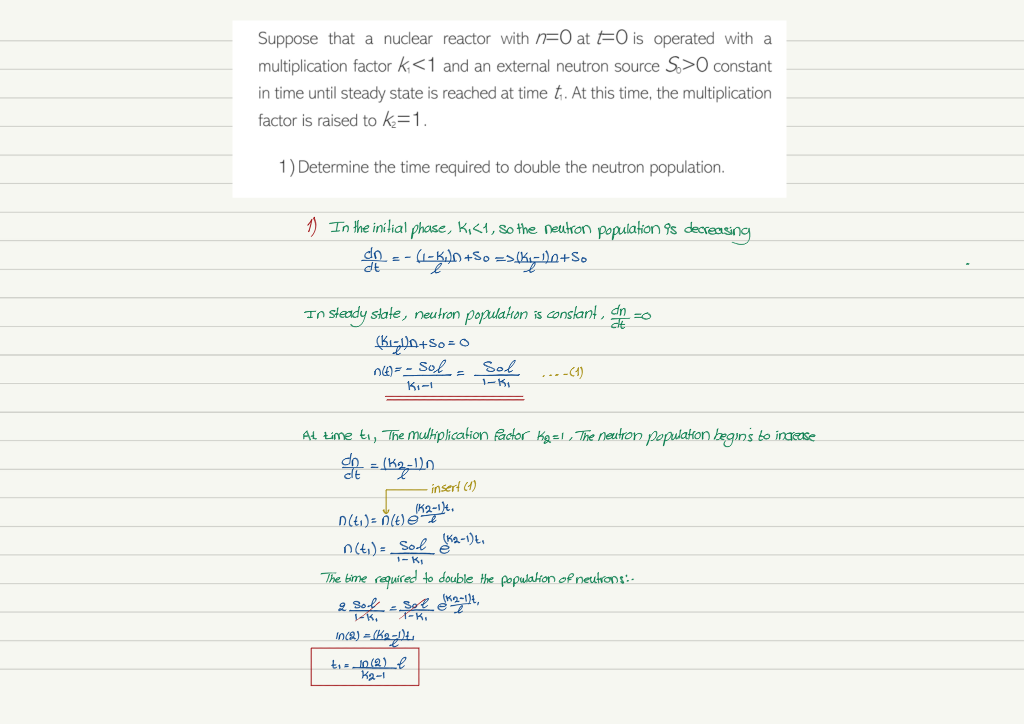 Suppose that a nuclear reactor with n=0 at t=0 is operated with a
multiplication factor k₁<1 and an external neutron source S₀>0 constant
in time until steady state is reached at time t₁. At this time, the multiplication
factor is raised to k₂=1.
1) Determine the time required to double the neutron population.
1) In the initial phase, K₁<1, so the neutron population is decreasing
dn/dt = -(1-K₁)n/l + S₀ => (K₁-1)n/l + S₀
In steady state, neutron population is constant, dn/dt = 0
(K₁-1)n/l + S₀ = 0
n(t) = -S₀l/K₁-1 = S₀l/1-K₁ ----(1)
At time t₁, The multiplication factor K₂=1, The neutron population begins to increase
dn/dt = (K₂-1)n/l
insert (1)
n(t₁) = n(t) e^(K₂-1)t₁/l
n(t₁) = S₀l/1-K₁ e^(K₂-1)t₁
The time required to double the population of neutrons:-
2 S₀l/1-K₁ = S₀l/1-K₁ e^(K₂-1)t₁/l
ln(2) = (K₂-1)t₁/l
t₁ = ln(2)/K₂-1 l